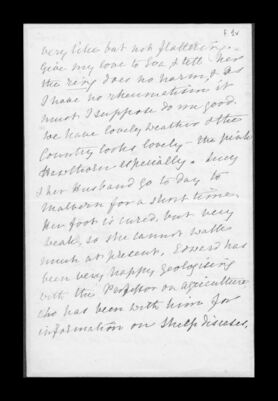 very like but not flattering.
Give my love to Eva & tell her
the ring does no harm, & as
I have no rheumatism it
must I suppose do me good.
We have lovely weather & the
Country looks lovely - the pink
Hawthorn especially. Lucy
& her Husband go to day to
Malvern for a short time.
Her foot is cured, but very
weak, so she cannot walk
much at present. Edward has
been very happy Geologising
with the Professor on agriculture,
who has been with him for
information on Sheep diseases,